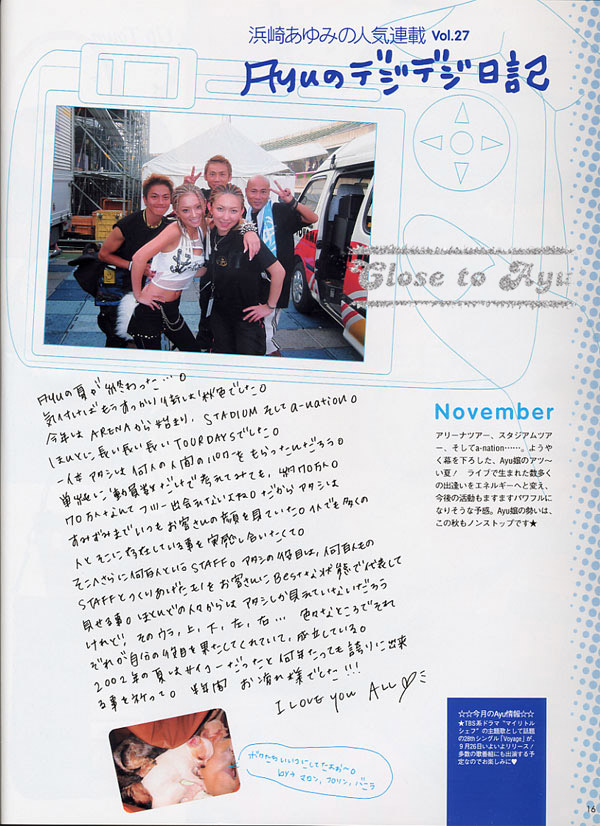 浜崎あゆみの人気連載 Vol.27
Ayuのデジデジ日記
Close to Ayu
Ayuの夏が終わった…。
気付けばもうすっかり街は秋色でした。
今年は ARENAから始まり、STADIUM そして a-nation。
ほんとに長い長い長い TOURDAYSでした。
一体アタシは何人の人間のパワーをもらったんだろう。
単純にご動員数だけで考れてみても、約70万人。
70万人なんてフツー出会えないよね。だからアタシは
あみずみまでいつもお客さんの顔を見ていた。1人でも多くの
人とそこに存在している事を実感し合いたくて。
そこへさらに何百人というSTAFF。アタシの役目は、何百人もの
STAFFとつくりあげたモノをお客さんにBestな状態で代表して
見せる事。ほとんどの人々からはアタシしか見れていないだろう
けれど、そのウラ、上、下、左、右… 色々なところでそれ
ぞれが自分の役目を果たしてくれていて、成立している。
2002年の夏はサイコーだったと何年たっても誇りに出来
る事を祈って。半年間 お疲れ様でした!!!
I LOVE you ALL
ボクたちいいコにしてたお〜。
by マロン、プリン、バニラ
November
アリーナツアー、スタジアムツア
ー、そしてa-nation……。ようや
く幕を下ろした、Ayu嬢のアツ〜
い夏！ ライブで生まれた数多く
の出逢いをエネルギーへと変え、
今後の活動もますますパワフルに
なりそうな予感。Ayu嬢の勢いは、
この秋もノンストップです★
☆☆今月のAyu情報☆☆
★TBS系ドラマ“マイリトル
シェフ”の主題歌として話題
の28thシングル「Voyage」が、
9月26日いよいよリリース！
多数の歌番組にも出演する予
定なのでお楽しみに♥
16